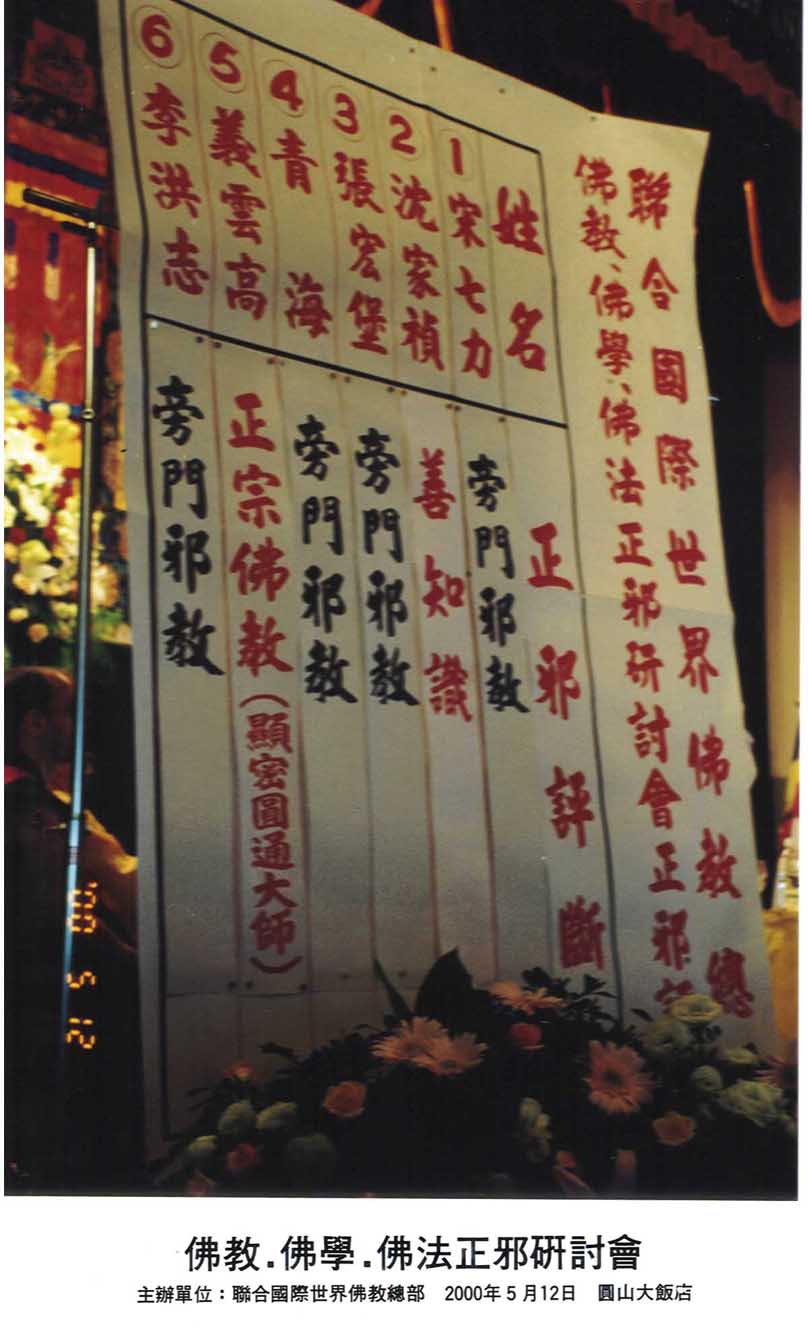 聯合國際世界佛教總
佛教、佛學、佛法正邪研討會正邪
姓名 正邪評斷
1 宋七力 旁門邪教
2 沈家禎 善知識
3 張宏堡 旁門邪教
4 青海 旁門邪教
5 義雲高 正宗佛教(顯密圓通大師)
6 李洪志 旁門邪教
'00 5 12
佛教.佛學.佛法正邪研討會
主辦單位：聯合國際世界佛教總部 2000年5月12日 圓山大飯店